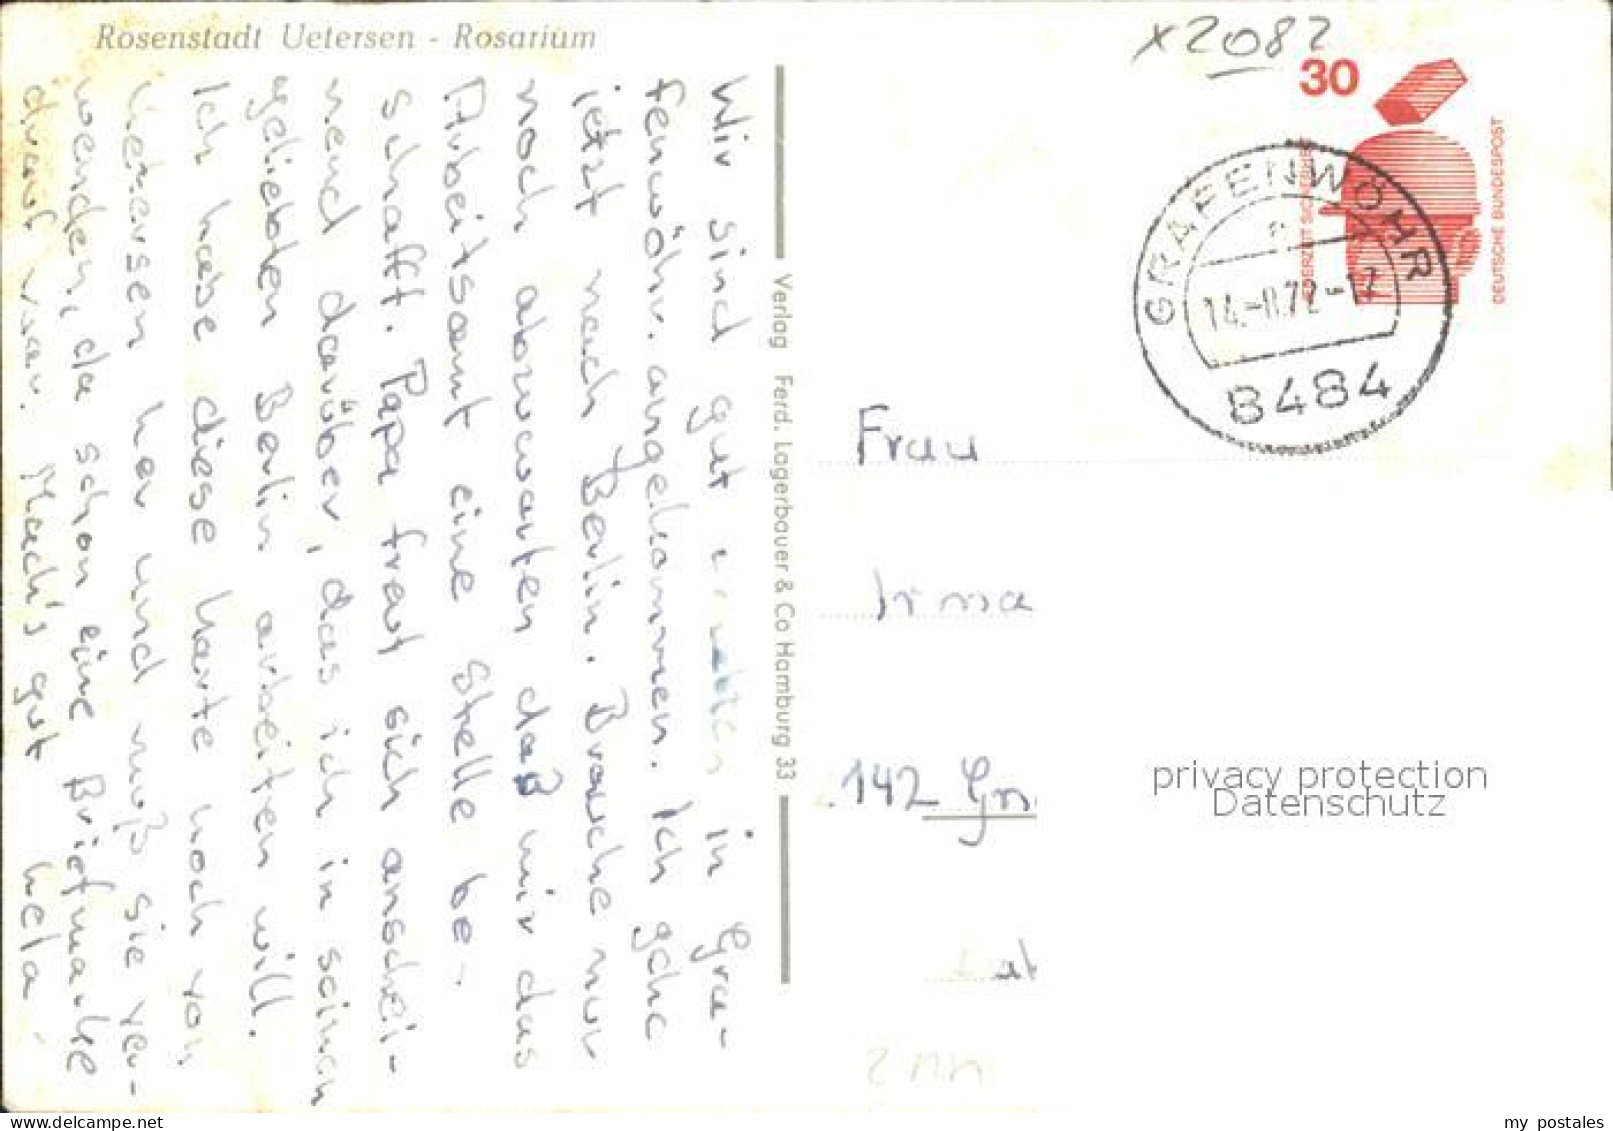 Rosenstadt Uetersen - Rosarium
x2082
30
JEDERZEIT SICHERHEIT
DEUTSCHE BUNDESPOST
GRAFENWÖHR
a
14.-8.72-17
8484
Wir sind gut in Gra-
fenwöhr angekommen. Ich gehe
jetzt nach Berlin. Brauche nur
noch abzuwarten daß mir das
Arbeitsamt eine Stelle be-
schafft. Papa freut sich anschei-
nend darüber, das ich in seinem
geliebten Berlin arbeiten will.
Ich habe diese Karte noch von
Uetersen her und muß sie ver-
wenden, da schon eine Briefmarke
drauf war. Mach's gut Hela
Verlag Ferd. Lagerbauer & Co Hamburg 33
Frau
Irma
142
privacy protection
Datenschutz
www.delcampe.net
my postales